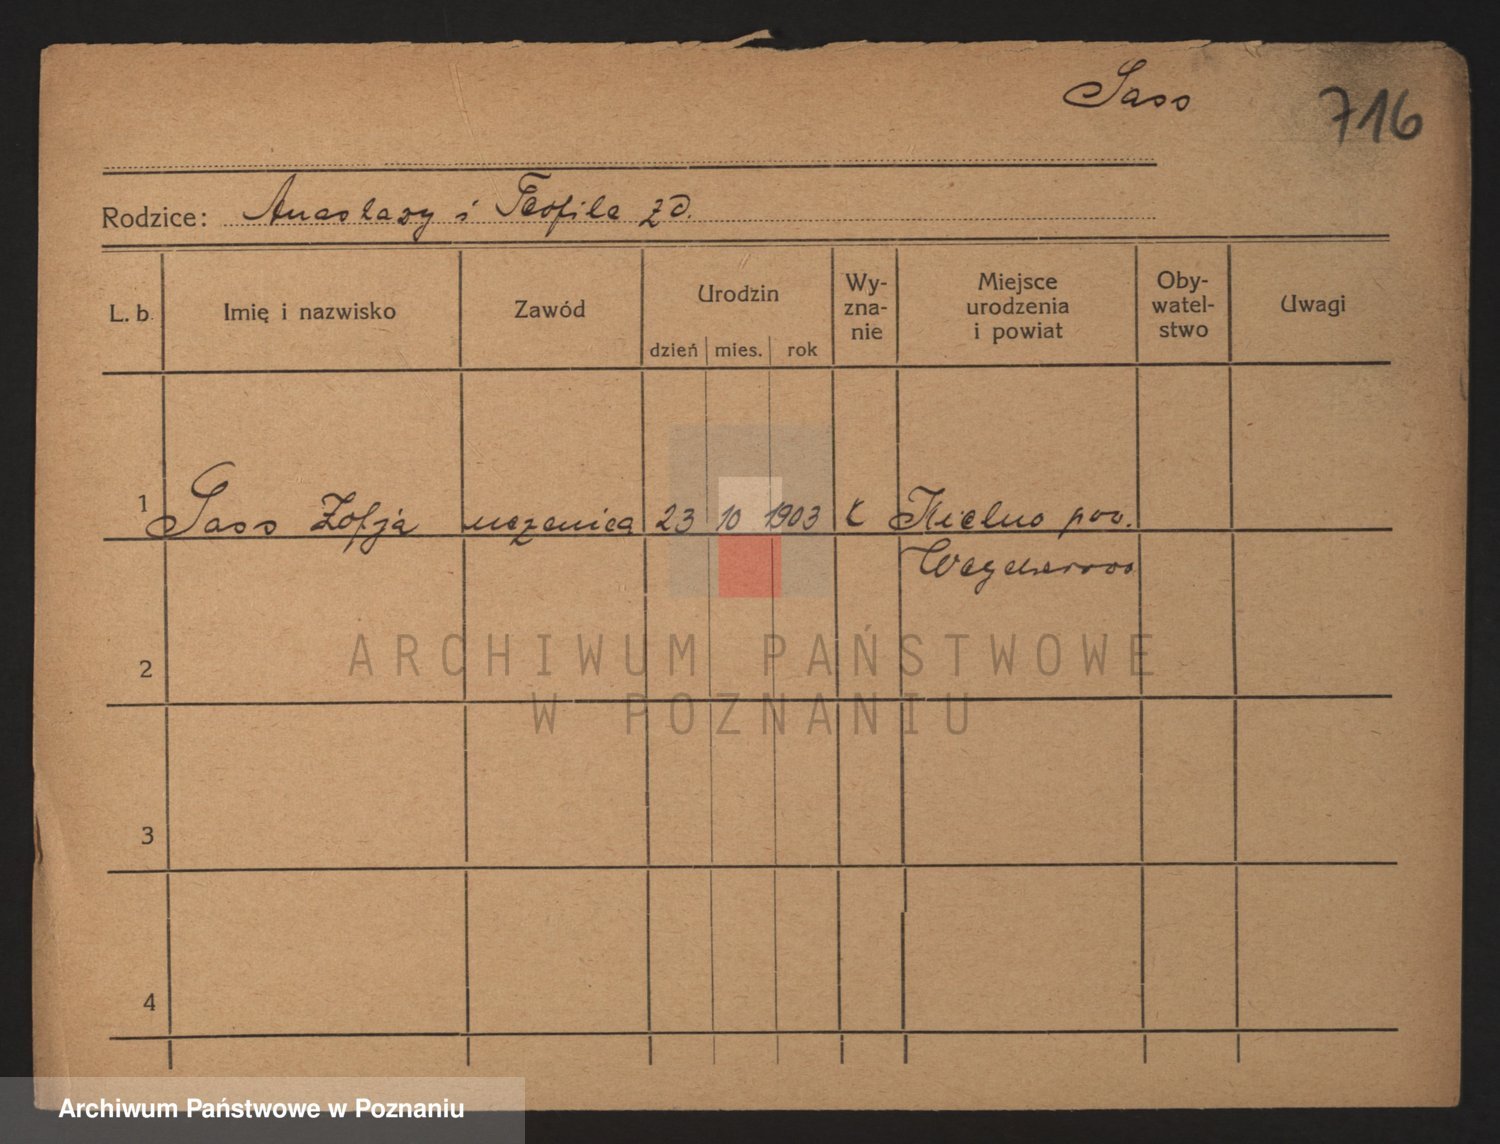 Sass
716
Rodzice: Anastazy i Teofila zd.
L. b. Imię i nazwisko Zawód Urodzin Wy-
zna-
nie Miejsce
urodzenia
i powiat Oby-
watel-
stwo Uwagi
dzień mies. rok
1 Sass Zofja uczenica 23 10 1903 k Kielno pow.
Wejherowo
2
3
4
ARCHIWUM PAŃSTWOWE
W POZNANIU
Archiwum Państwowe w Poznaniu